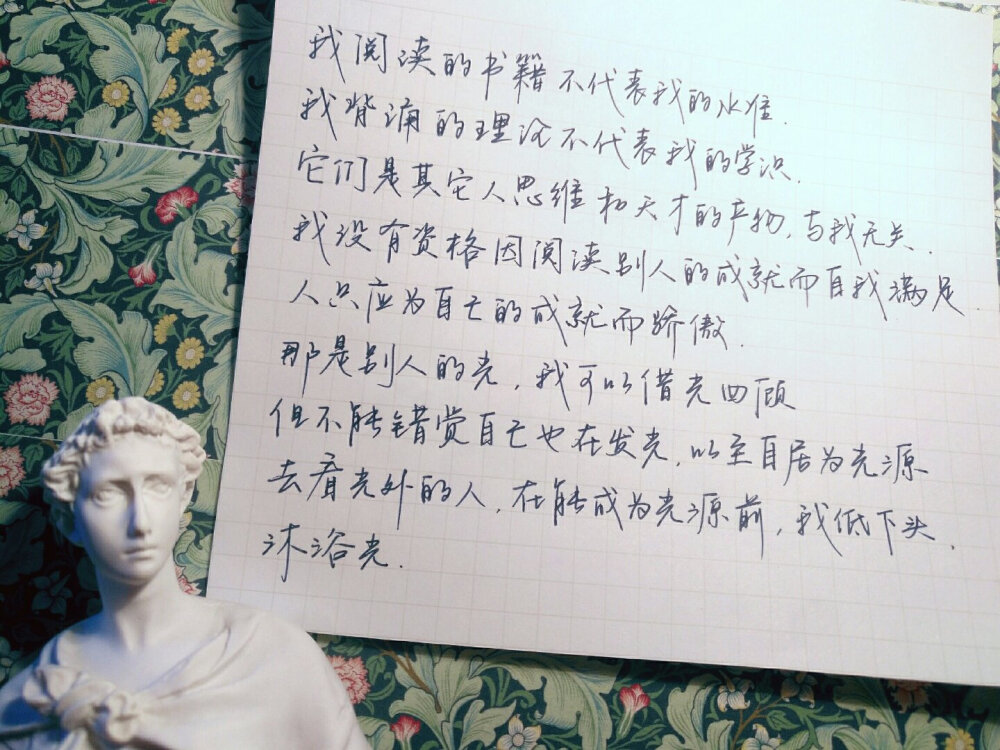 我阅读的书籍不代表我的水准.
我背诵的理论不代表我的学识.
它们是其它人思维和天才的产物,与我无关.
我没有资格因阅读别人的成就而自我满足.
人只应为自己的成就而骄傲.
那是别人的光,我可以借光四顾
但不能错觉自己也在发光,以至自居为光源
去看光外的人,在能成为光源前,我低下头.
沐浴光.